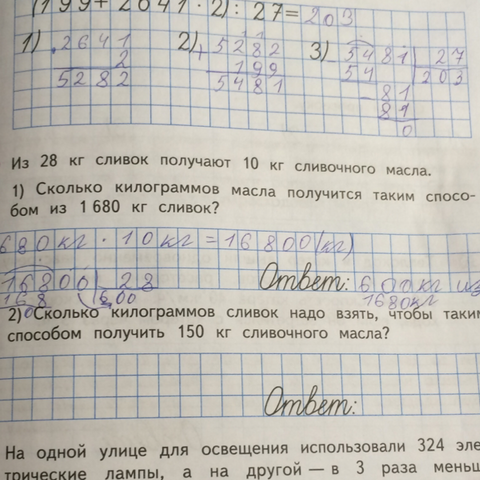 (199+2641·2):27=203
1) 2641 2) 5282 3) 5481 27
2 + 199 54 203
5282 5481 81
81
0
Из 28 кг сливок получают 10 кг сливочного масла.
1) Сколько килограммов масла получится таким спосо-
бом из 1 680 кг сливок?
680кг · 10кг = 16800(кг)
16800 28
168 600 Ответ: 600кг из
0 1680кг
2) Сколько килограммов сливок надо взять, чтобы таким
способом получить 150 кг сливочного масла?
Ответ:
На одной улице для освещения использовали 324 эле-
трические лампы, а на другой — в 3 раза меньш